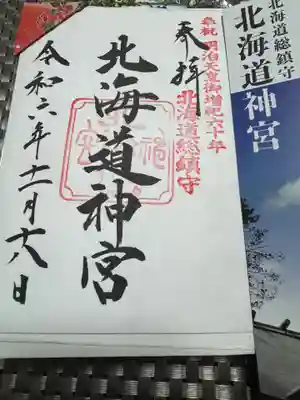 奉祝 明治天皇御増祀六十年
北海道総鎮守
奉拝
北海道神宮
令和六年十二月十八日
北海道総鎮守
北海道神宮